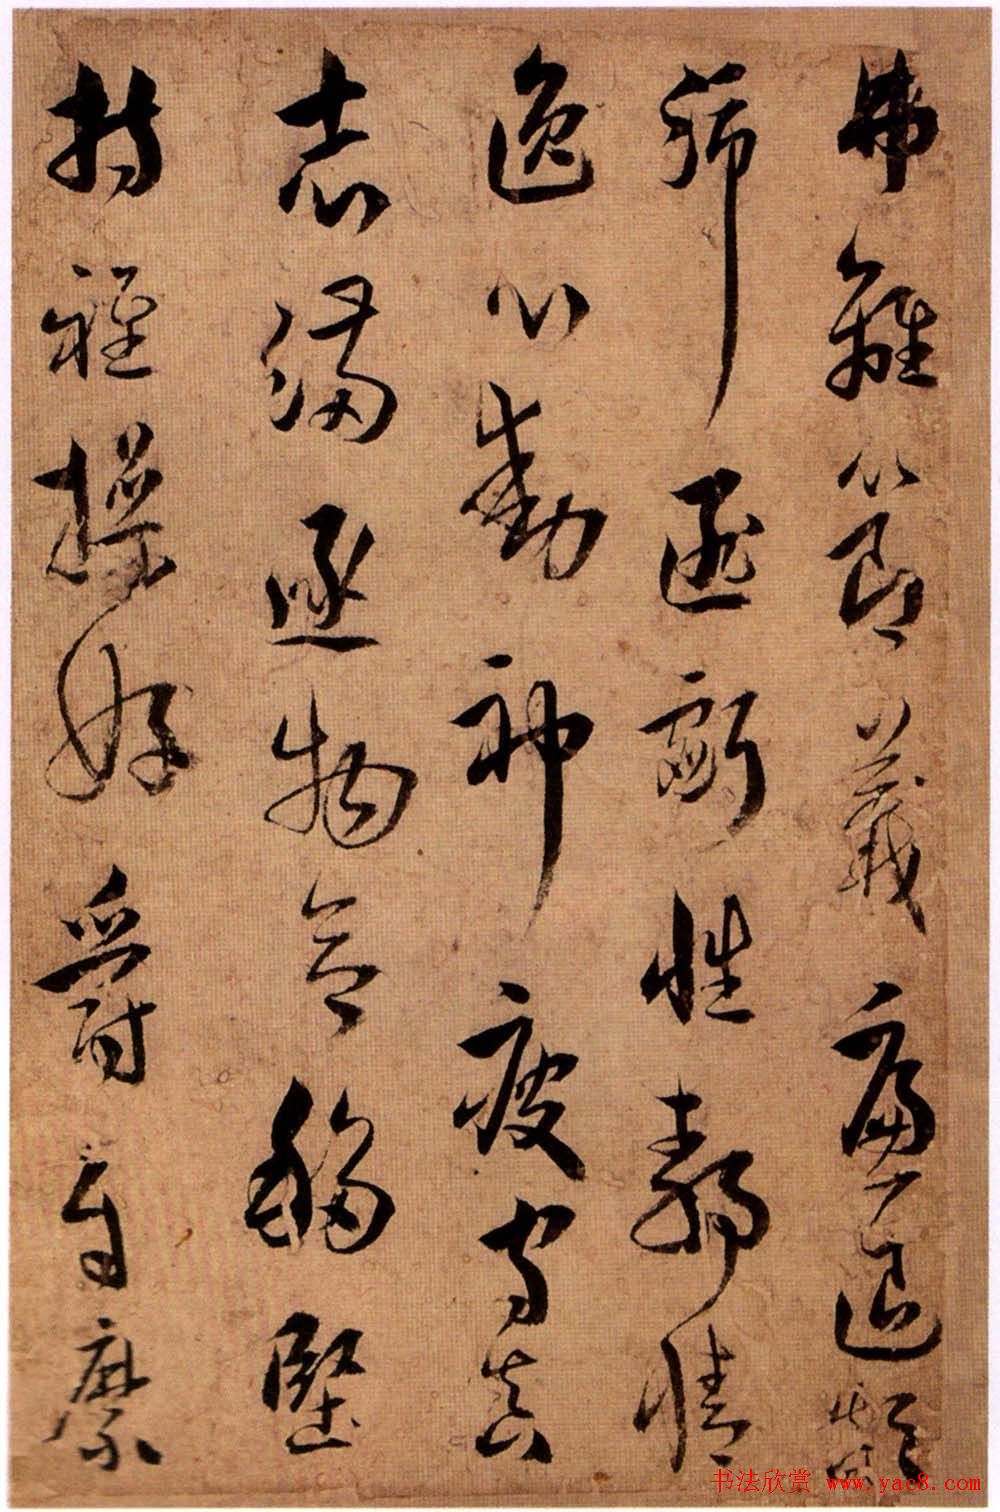 弗離節義廉退顛
沛匪虧性靜情
逸心動神疲守真
志滿逐物意移堅
持雅操好爵自縻
书法欣赏 www.yac8.com